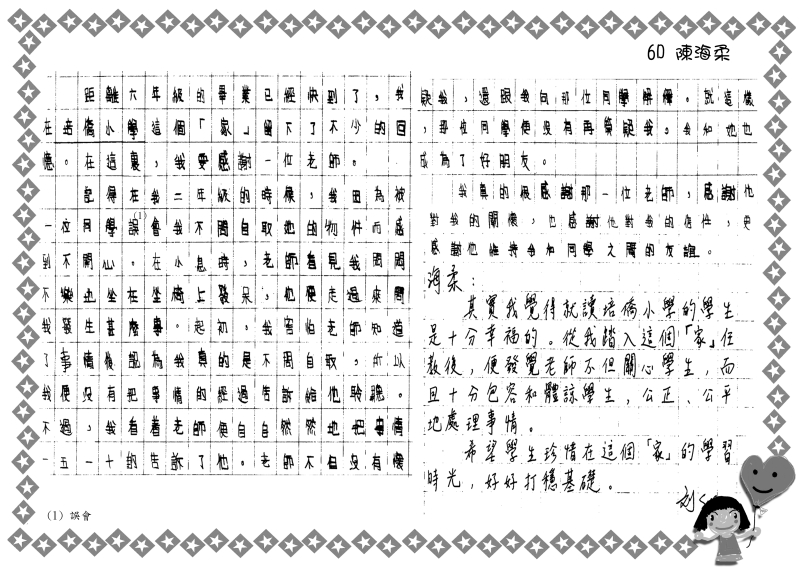 6D 陳海柔
距離六年級的畢業已經快到了，我
在培僑小學這個「家」留下了不少的回
憶。在這裏，我要感謝一位老師。
記得在我二年級的時候，我因為被
一位同學誤會我不問自取他的物件而感
(1)
到不開心。在小息時，老師看見我悶悶
不樂地坐在坐椅上發呆，他便走過來問
我發生甚麼事。起初，我害怕老師知道
了事情後認為我真的是不問自取，所以
我便沒有把事情的經過告訴給他聆聽。
不過，我看着老師便自自然然地把事情
一五一十的告訴了他。老師不但沒有懷
(1) 誤會
疑我，還跟我向那位同學解釋。就這樣
，那位同學便沒有再質疑我。我和她也
成為了好朋友。
我真的很感謝那一位老師，感謝他
對我的關懷，也感謝他對我的信任，更
感謝他維持我和同學之間的友誼。
海柔：
其實我覺得就讀培僑小學的學生
是十分幸福的。從我踏入這個「家」任
教後，便發覺老師不但關心學生，而
且十分包容和體諒學生，公正、公平
地處理事情。
希望學生珍惜在這個「家」的學習
時光，好好打穩基礎。